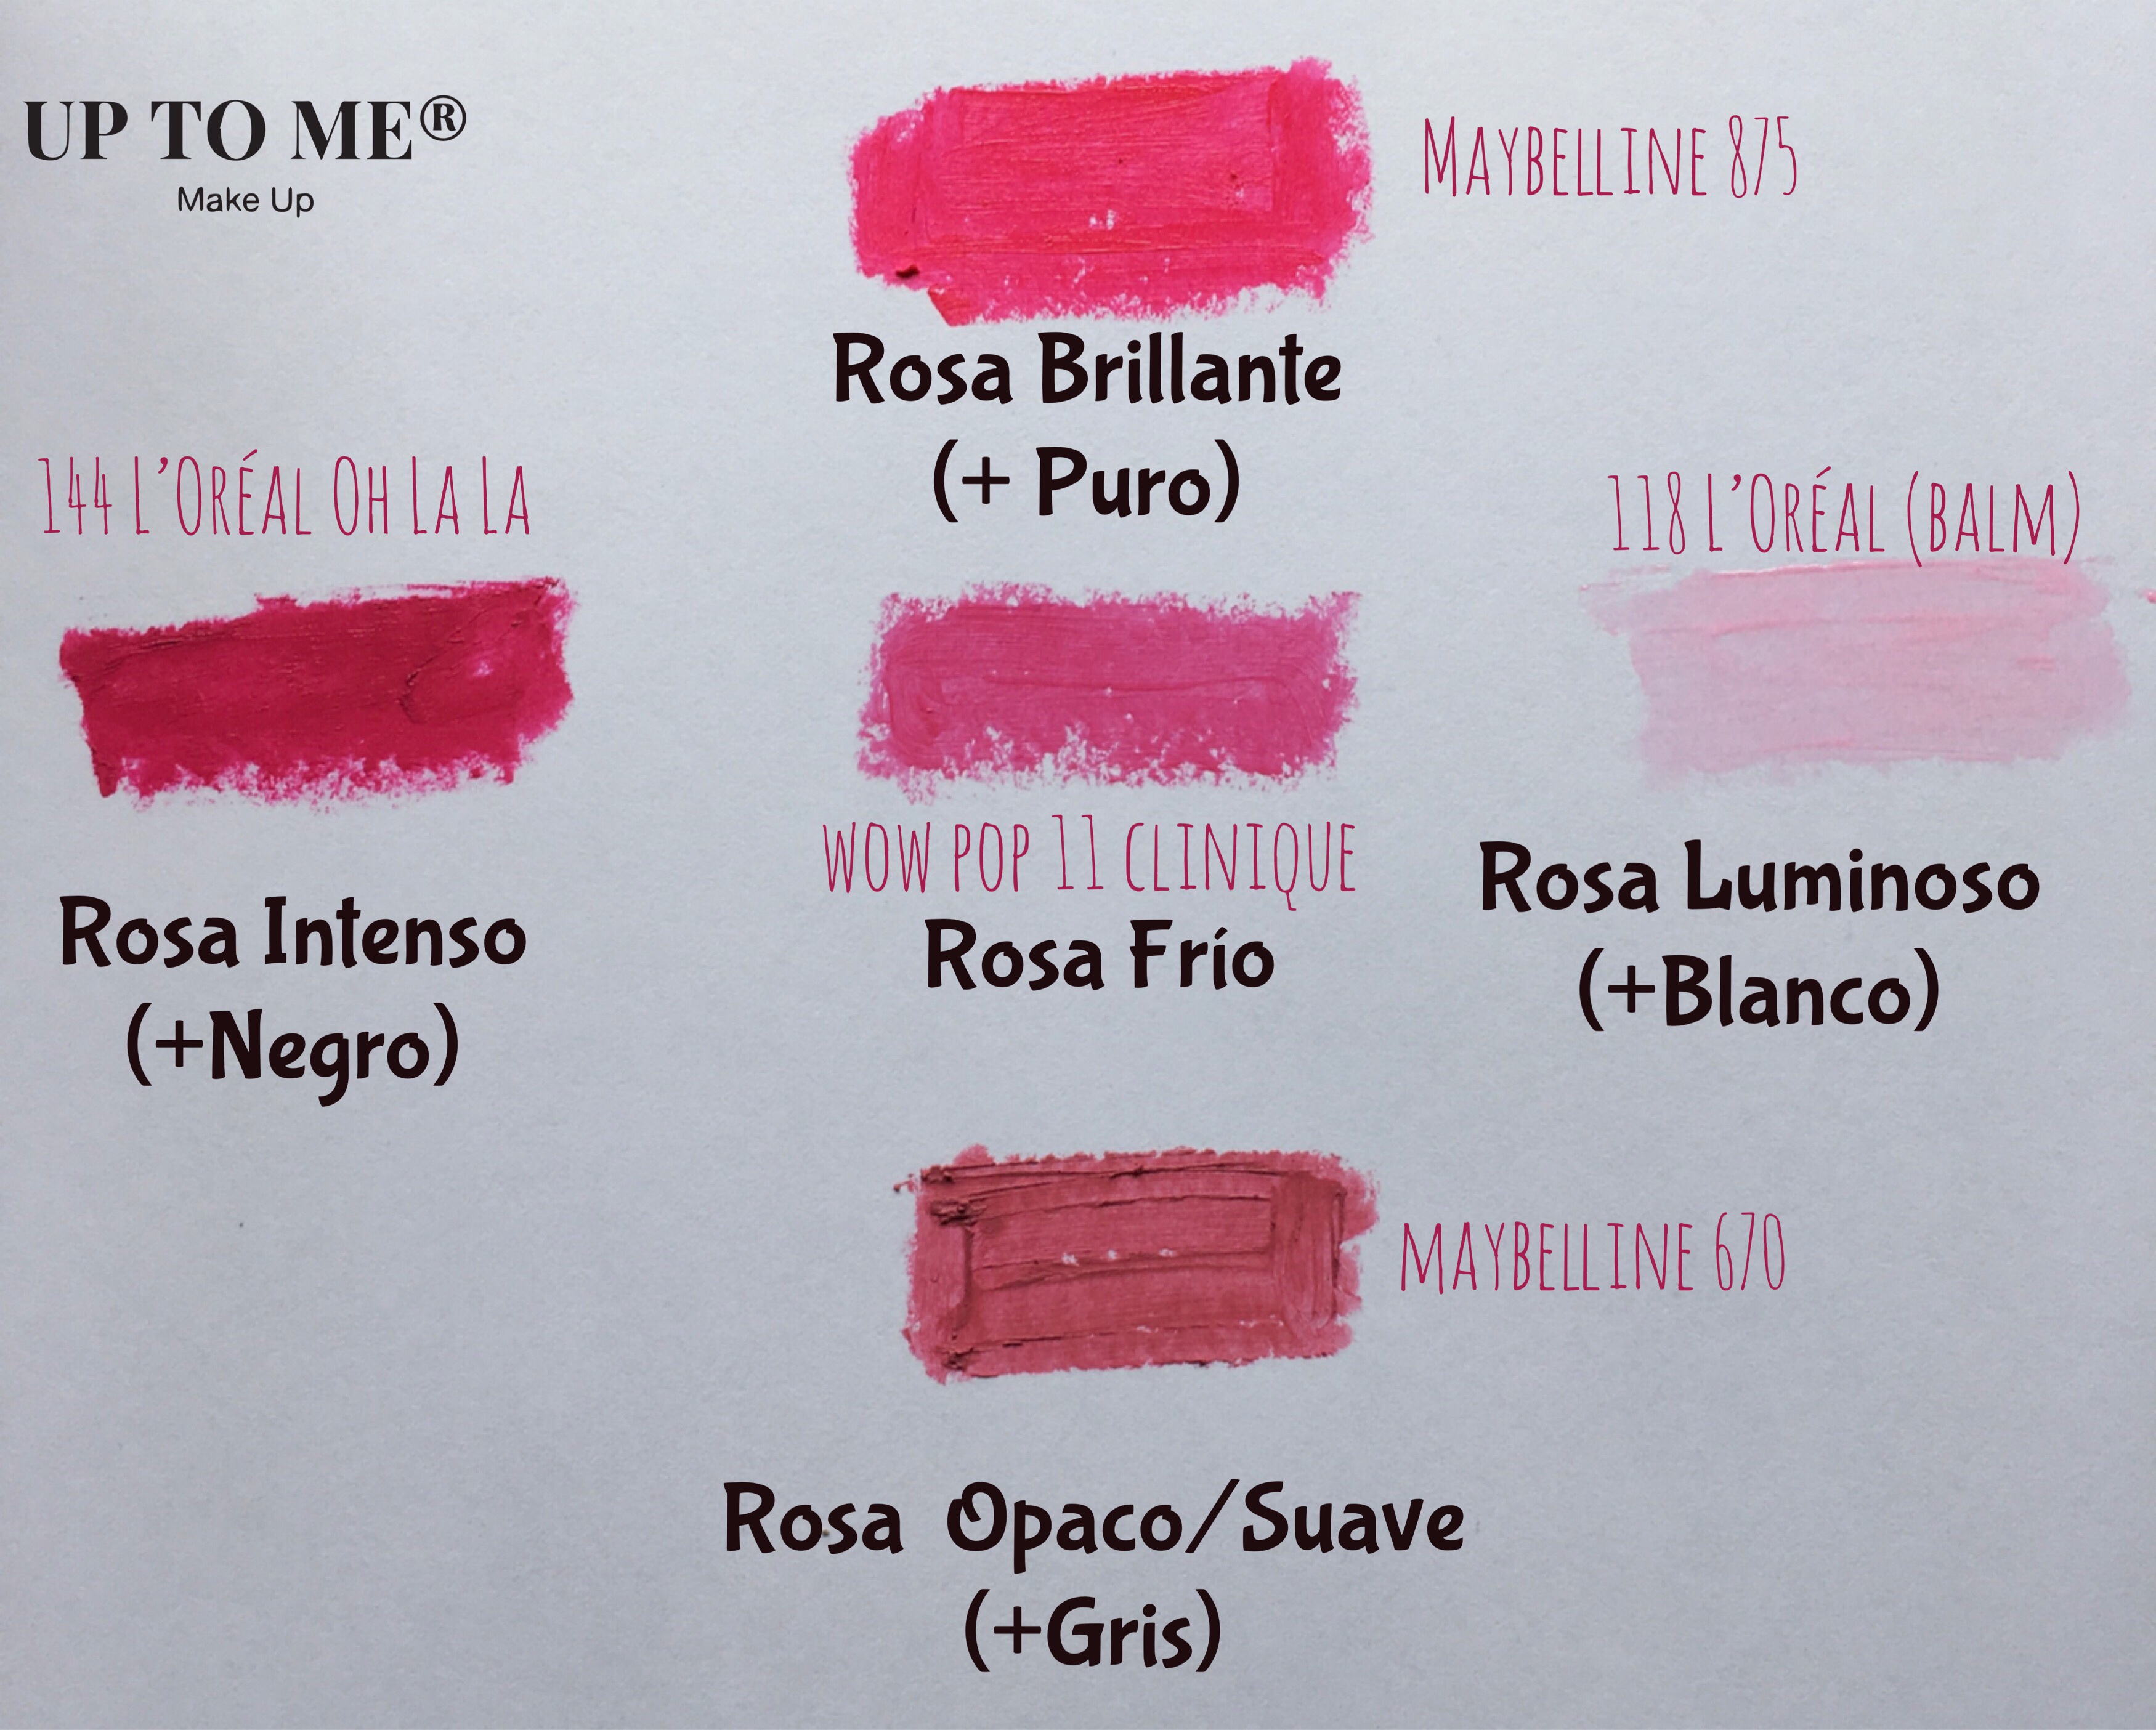 UP TO ME®
Make Up
MAYBELLINE 875
Rosa Brillante
(+ Puro)
144 L'ORÉAL OH LA LA
118 L'ORÉAL (BALM)
WOW POP 11 CLINIQUE
Rosa Intenso
(+Negro)
Rosa Frío
Rosa Luminoso
(+Blanco)
MAYBELLINE 670
Rosa Opaco/Suave
(+Gris)